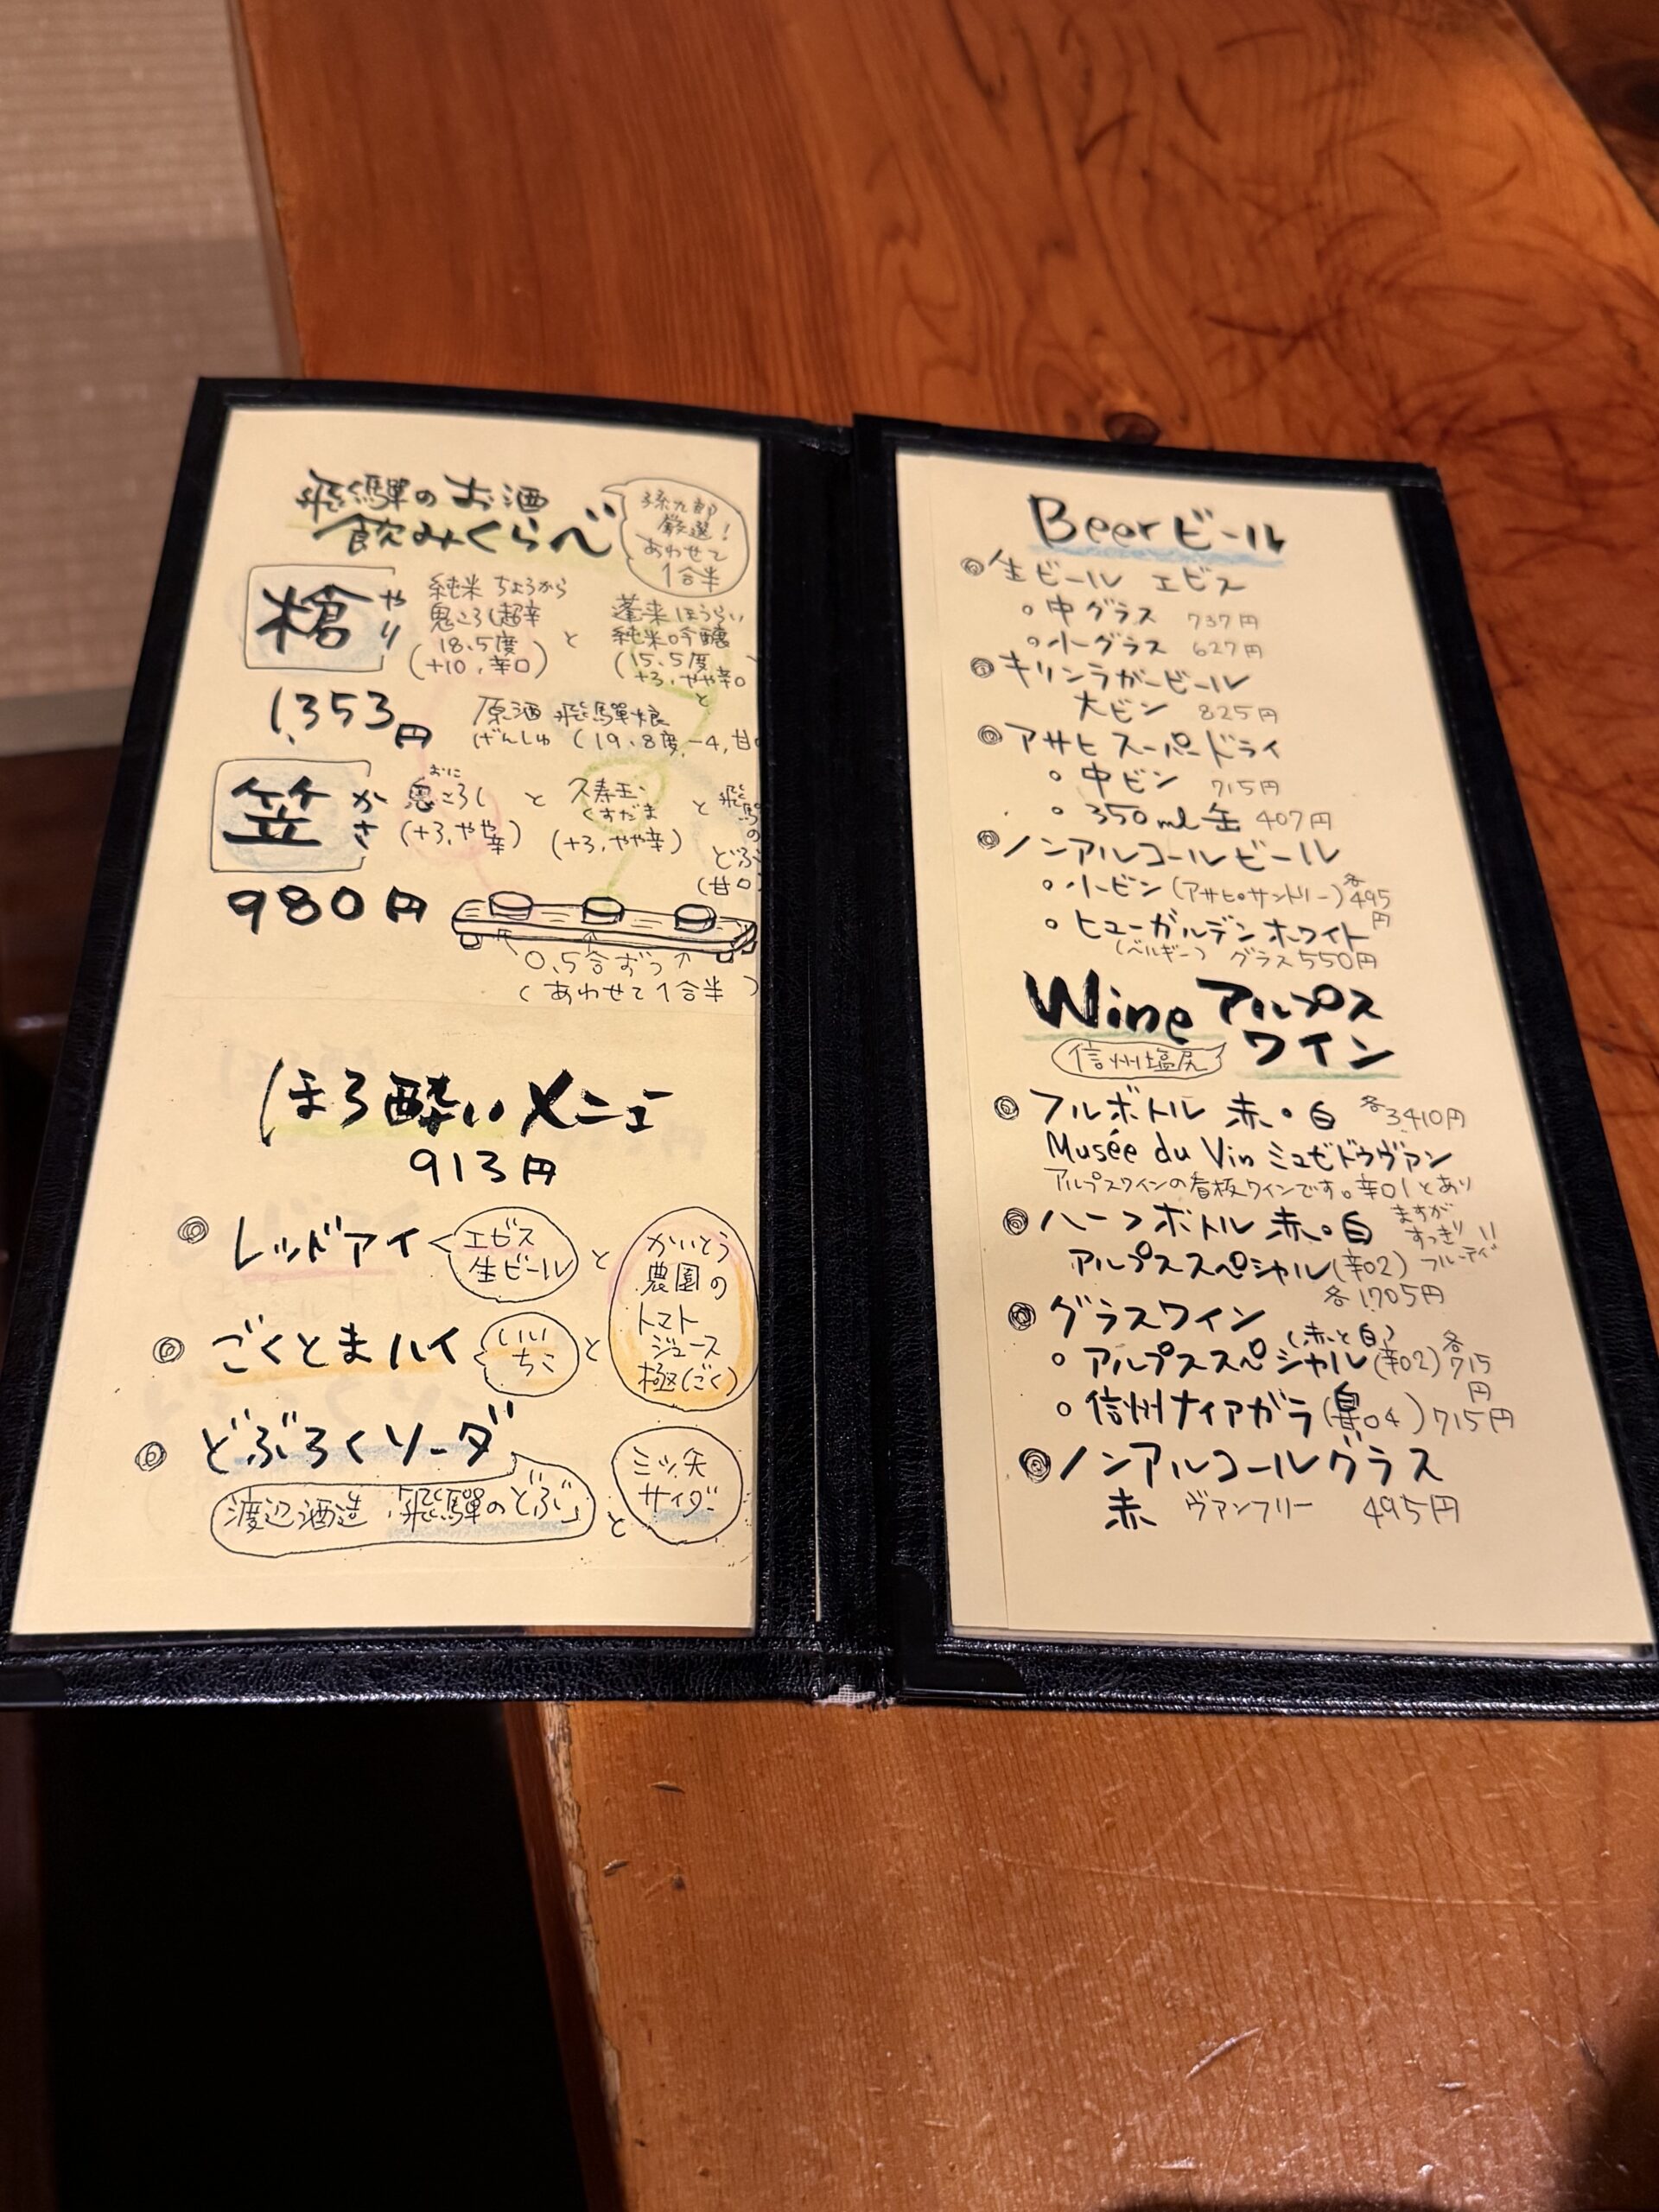 飛騨のお酒
飲みくらべ
孫九郎
厳選!
あわせて
1合半
槍 やり
純米 ちょうから
鬼ころし超辛
18.5度
(+10,辛口)
と
蓬莱 ほうらい
純米吟醸
(15.5度
+3,やや辛口
と
1,353円
原酒 飛騨娘
げんしゅ (19.8度,-4,甘
笠 かさ
おに
鬼ころし
(+3,やや辛)
と
久寿玉
くすだま
(+3,やや辛)
と
飛騨
の
どぶ
(甘口
980円
0.5合ずつ
(あわせて1合半)
ほろ酔いメニュー
913円
◎ レッドアイ
エビス
生ビール
と
かいとう
農園の
トマト
ジュース
極(ごく)
◎ ごくとまハイ
いい
ちこ
と
◎ どぶろくソーダ
渡辺酒造「飛騨のどぶ」
と
三ツ矢
サイダー
Beer ビール
◎ 生ビール エビス
○ 中グラス 737円
○ 小グラス 627円
◎ キリンラガービール
大ビン 825円
◎ アサヒ スーパードライ
○ 中ビン 715円
○ 350ml缶 407円
◎ ノンアルコールビール
○ 小ビン(アサヒ・サントリー)各495円
○ ヒューガルデンホワイト
(ベルギー) グラス550円
Wine アルプス
ワイン
信州塩尻
◎ フルボトル 赤・白 各3,410円
Musée du Vin ミュゼドゥヴァン
アルプスワインの看板ワインです。辛01とあり
ますが
すっきり
フルーティ
◎ ハーフボトル 赤・白
アルプススペシャル(辛02)
各1,705円
◎ グラスワイン
(赤と白)
○ アルプススペシャル(辛02)各715円
○ 信州ナイアガラ(04)715円
◎ ノンアルコールグラス
赤 ヴァンフリー 495円